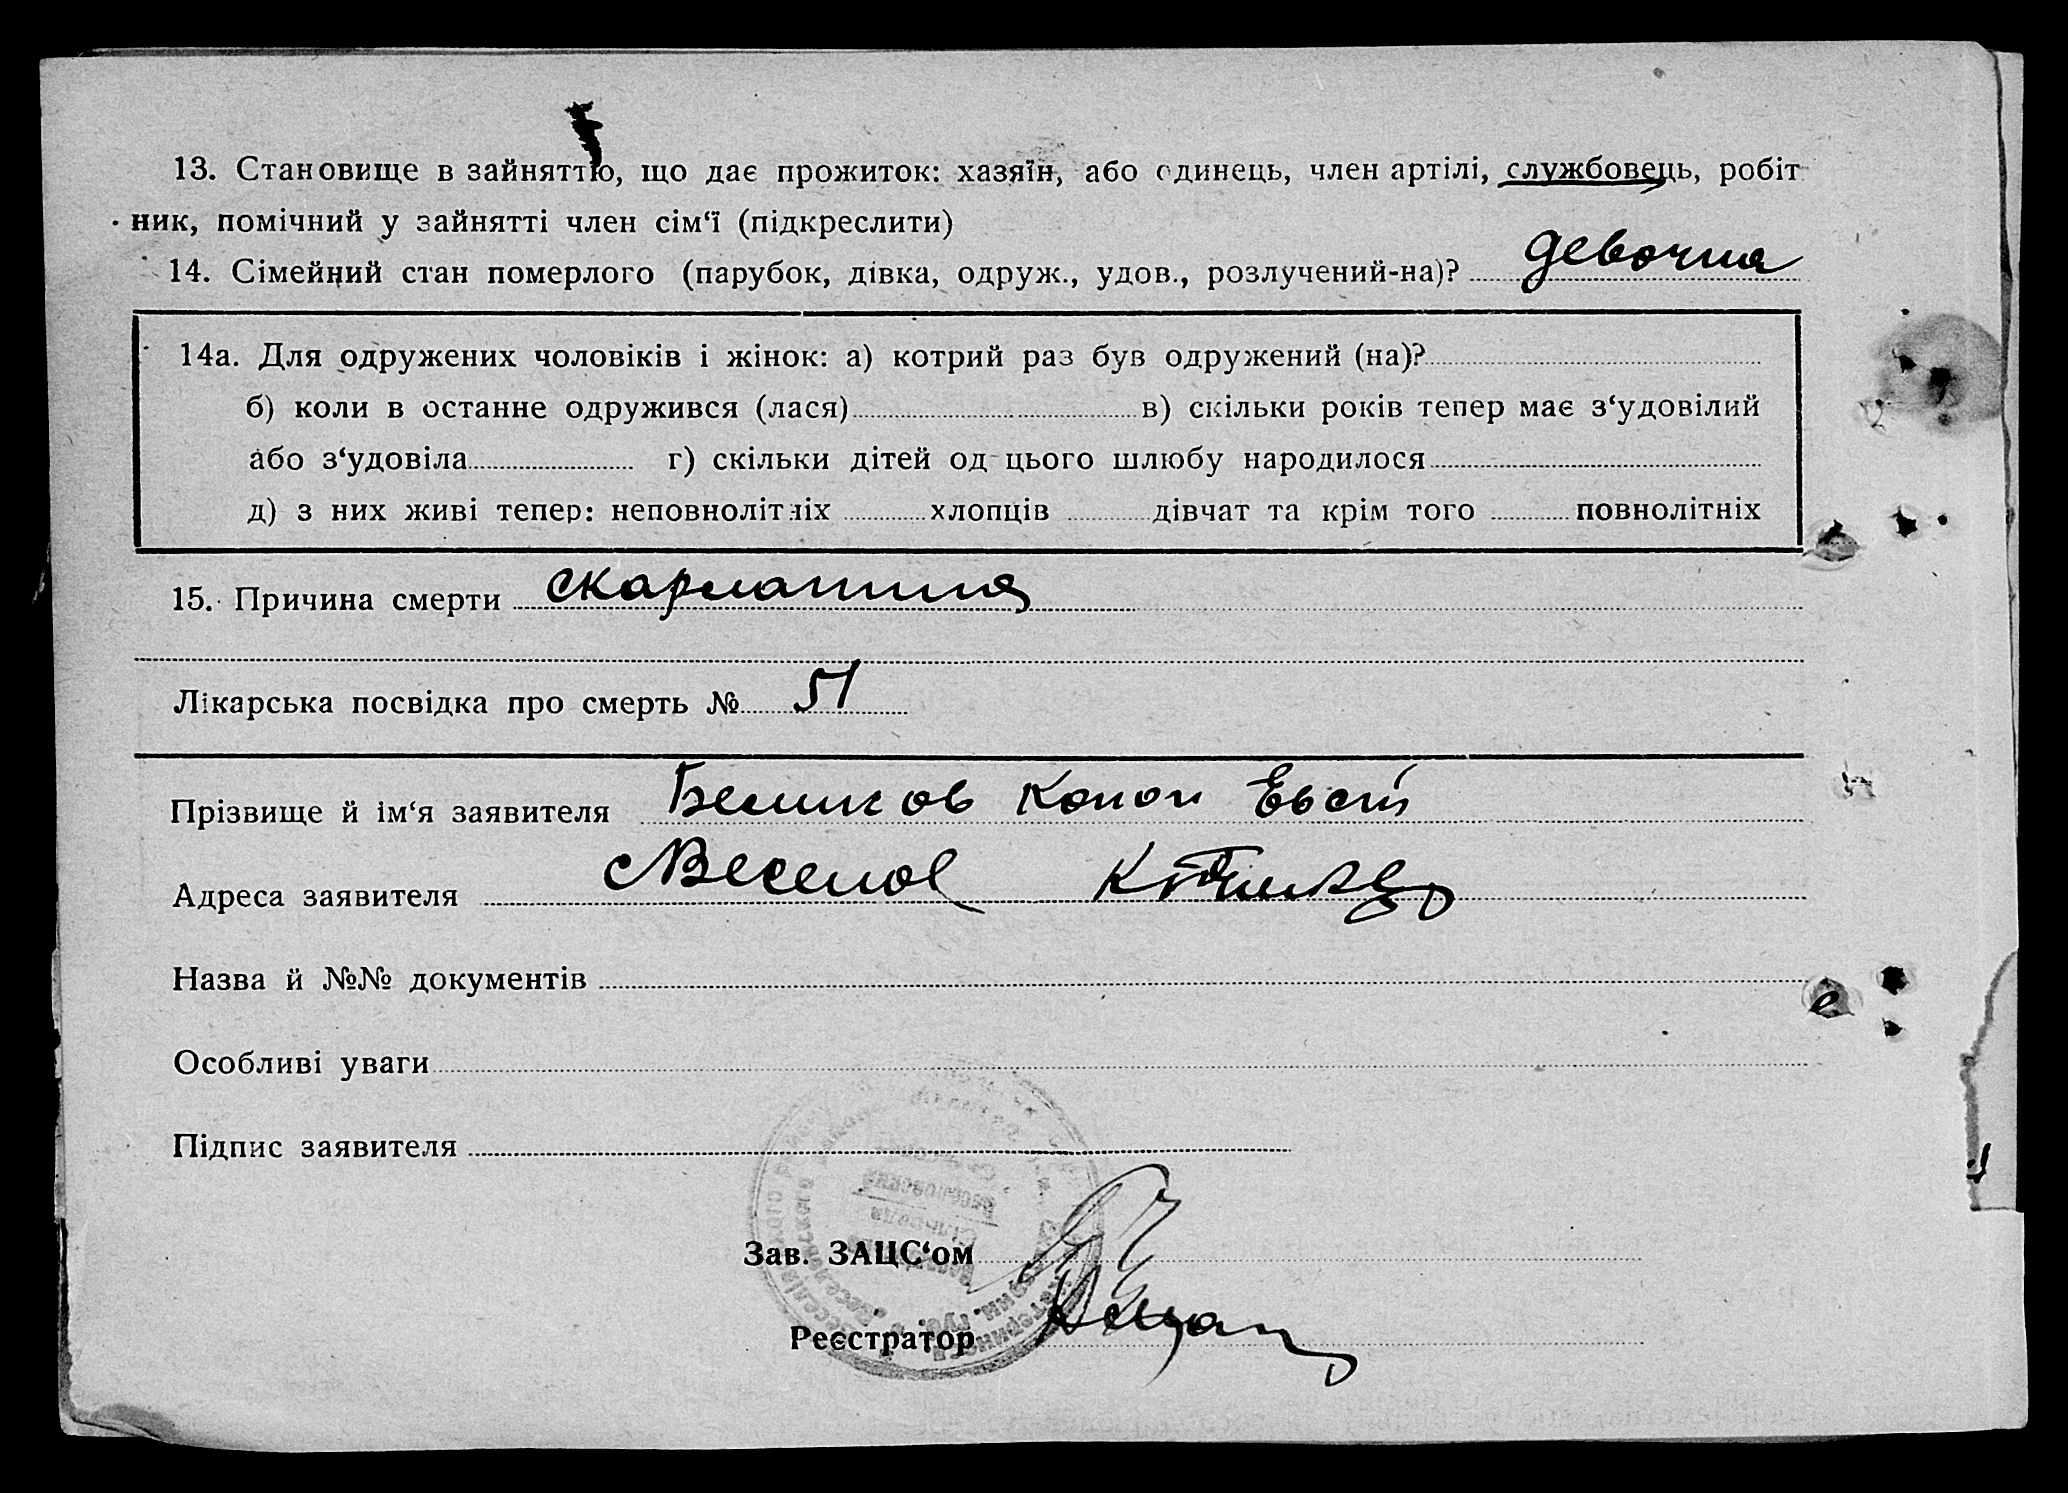 13. Становище в зайняттю, що дає прожиток: хазяїн, або одинець, член артілі, службовець, робіт
ник, помічний у зайнятті член сім‘ї (підкреслити)
14. Сімейний стан померлого (парубок, дівка, одруж., удов., розлучений-на)? девочка
14а. Для одружених чоловіків і жінок: а) котрий раз був одружений (на)?
б) коли в останне одружився (лася) в) скільки років тепер має з‘удовілий
або з‘удовіла г) скільки дітей од цього шлюбу народилося
д) з них живі тепер: неповнолітніх хлопців дівчат та крім того повнолітніх
15. Причина смерти скарлатина
Лікарська посвідка про смерть № 51
Прізвище й ім‘я заявителя Беликов Конон Евст
Адреса заявителя с Веселое
Назва й №№ документів
Особливі уваги
Підпис заявителя
Зав. ЗАЦС‘ом
Реєстратор